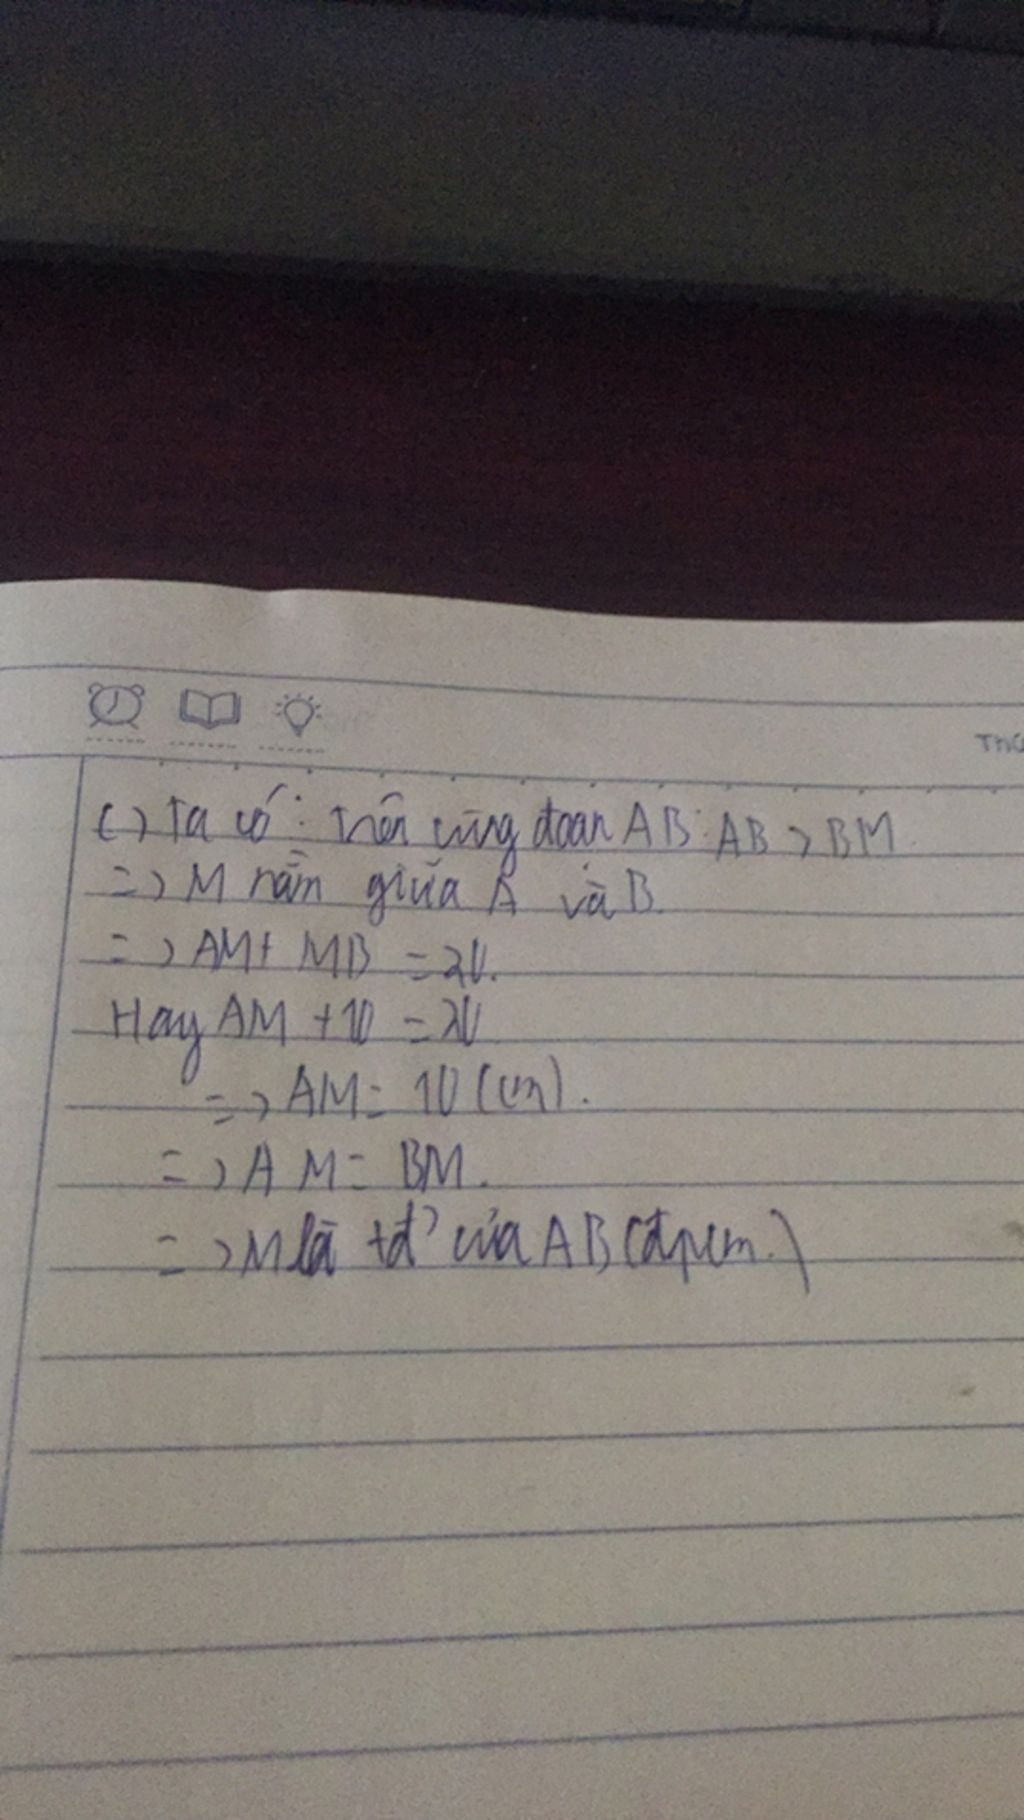 Thứ
c) Ta có: trên cùng đoan AB: AB > BM.
=> M nằm giữa A và B.
=> AM + MB = 20.
Hay AM + 10 = 20
=> AM = 10 (cm).
=> AM = BM.
=> M là tđ' của AB (đpcm.)